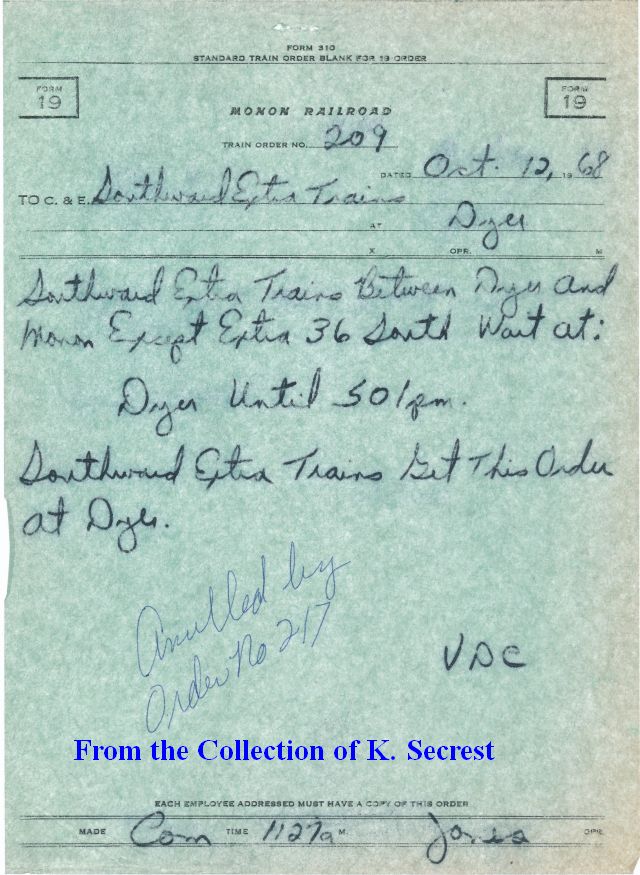 FORM 310
STANDARD TRAIN ORDER BLANK FOR 19 ORDER
FORM 19 FORM 19
MONON RAILROAD
TRAIN ORDER NO. 209
DATED Oct. 12, 1968
TO C. & E. Southward Extra Trains
AT Dyer
X OPR. M
Southward Extra Trains Between Dyer and
Monon Except Extra 36 South Wait at:
Dyer Until 501pm.
Southward Extra Trains Get This Order
at Dyer.
Anulled by
Order No 217
VDC
From the Collection of K. Secrest
EACH EMPLOYEE ADDRESSED MUST HAVE A COPY OF THIS ORDER
MADE Com TIME 1127a M. Jones OPR.